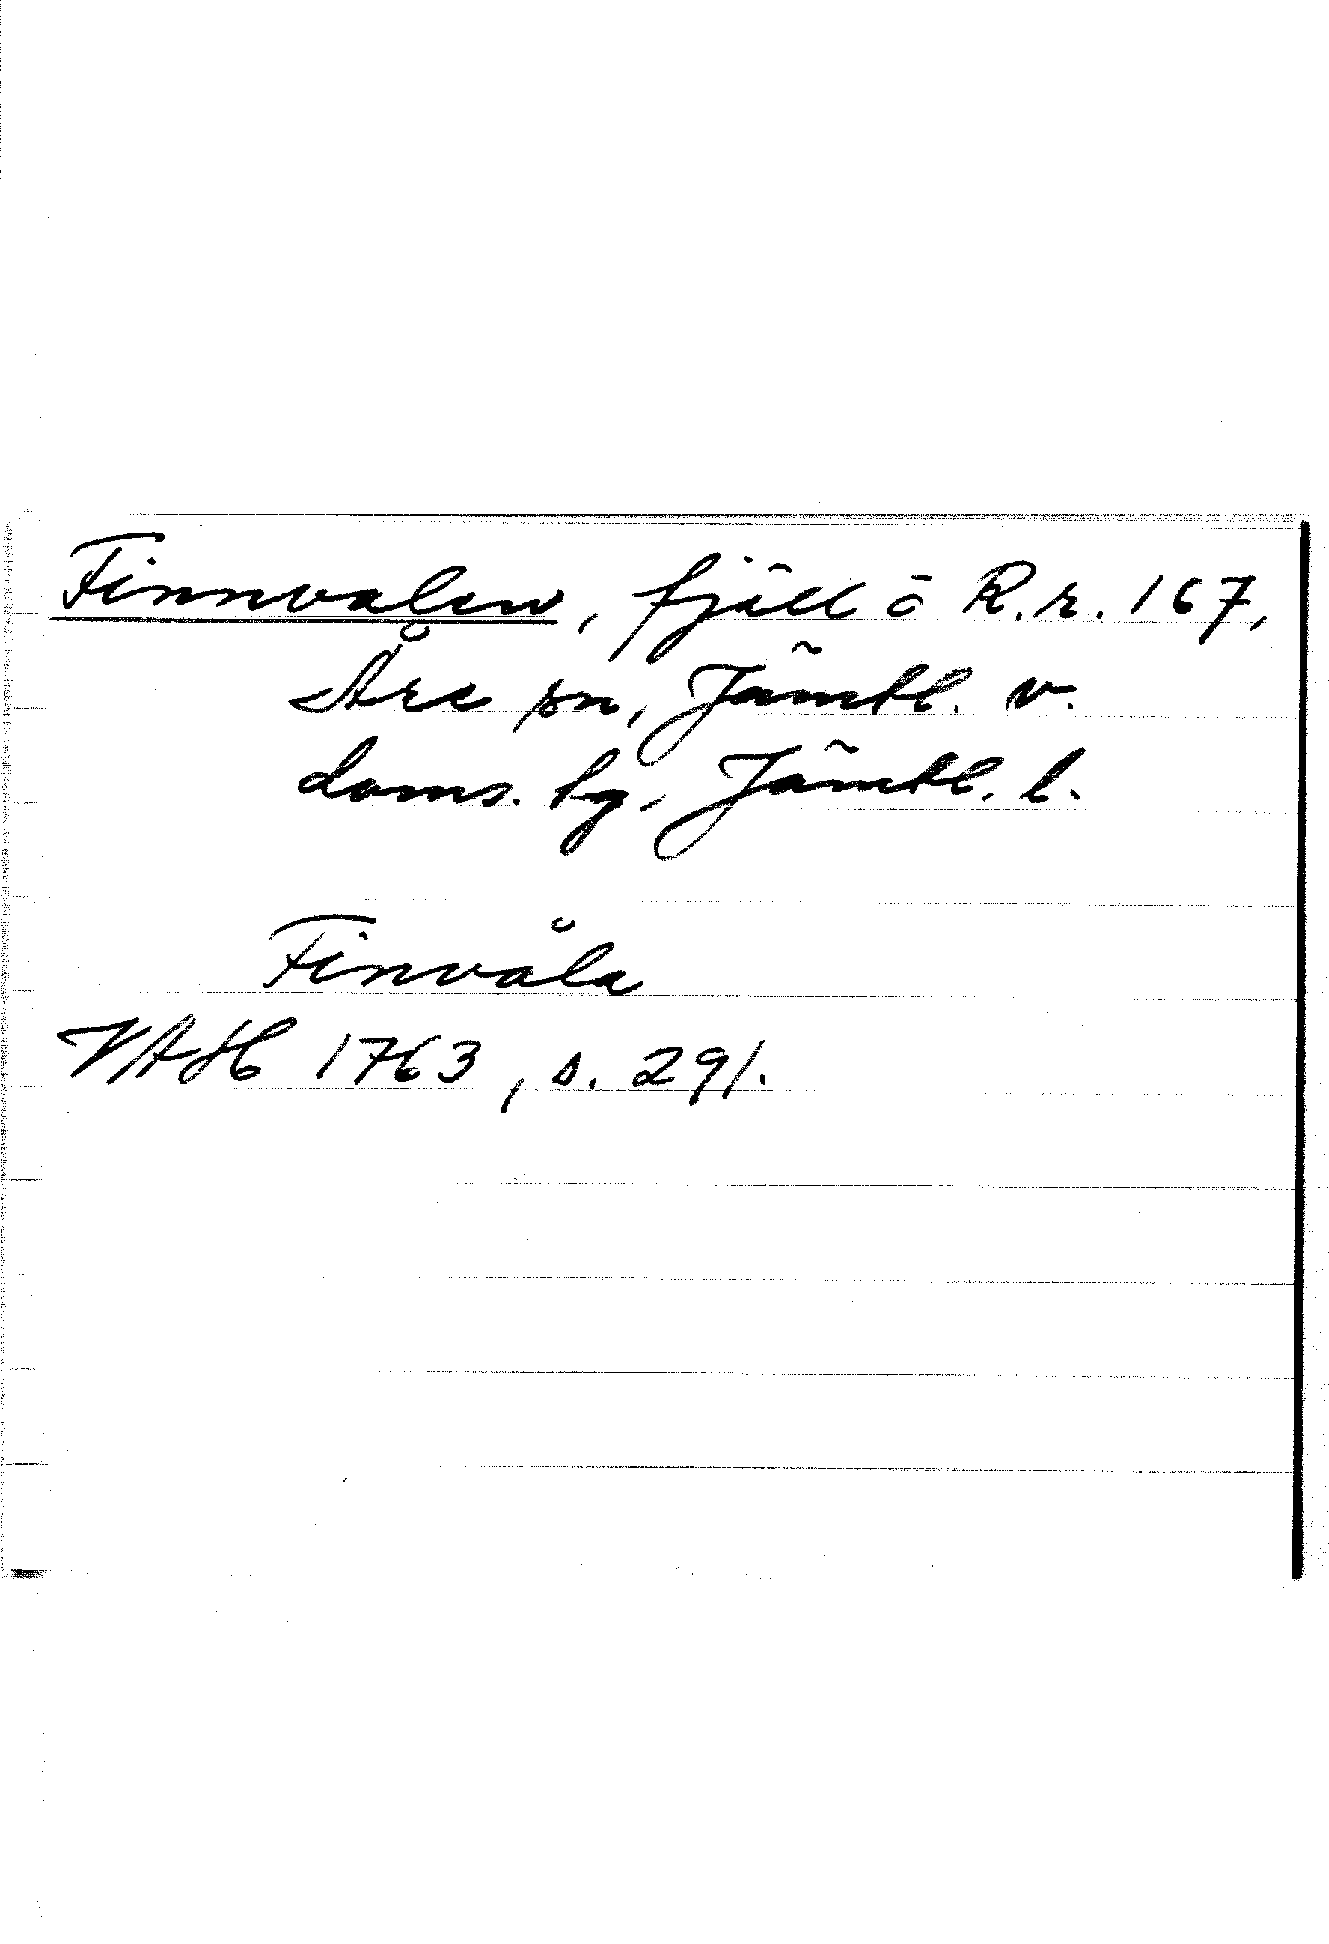 Finnvalen, fjäll ö R.r. 167,
Åre sn, Jämtl. v.
doms. hg, Jämtl. l.
Finvåla
VAH 1763, s. 291.